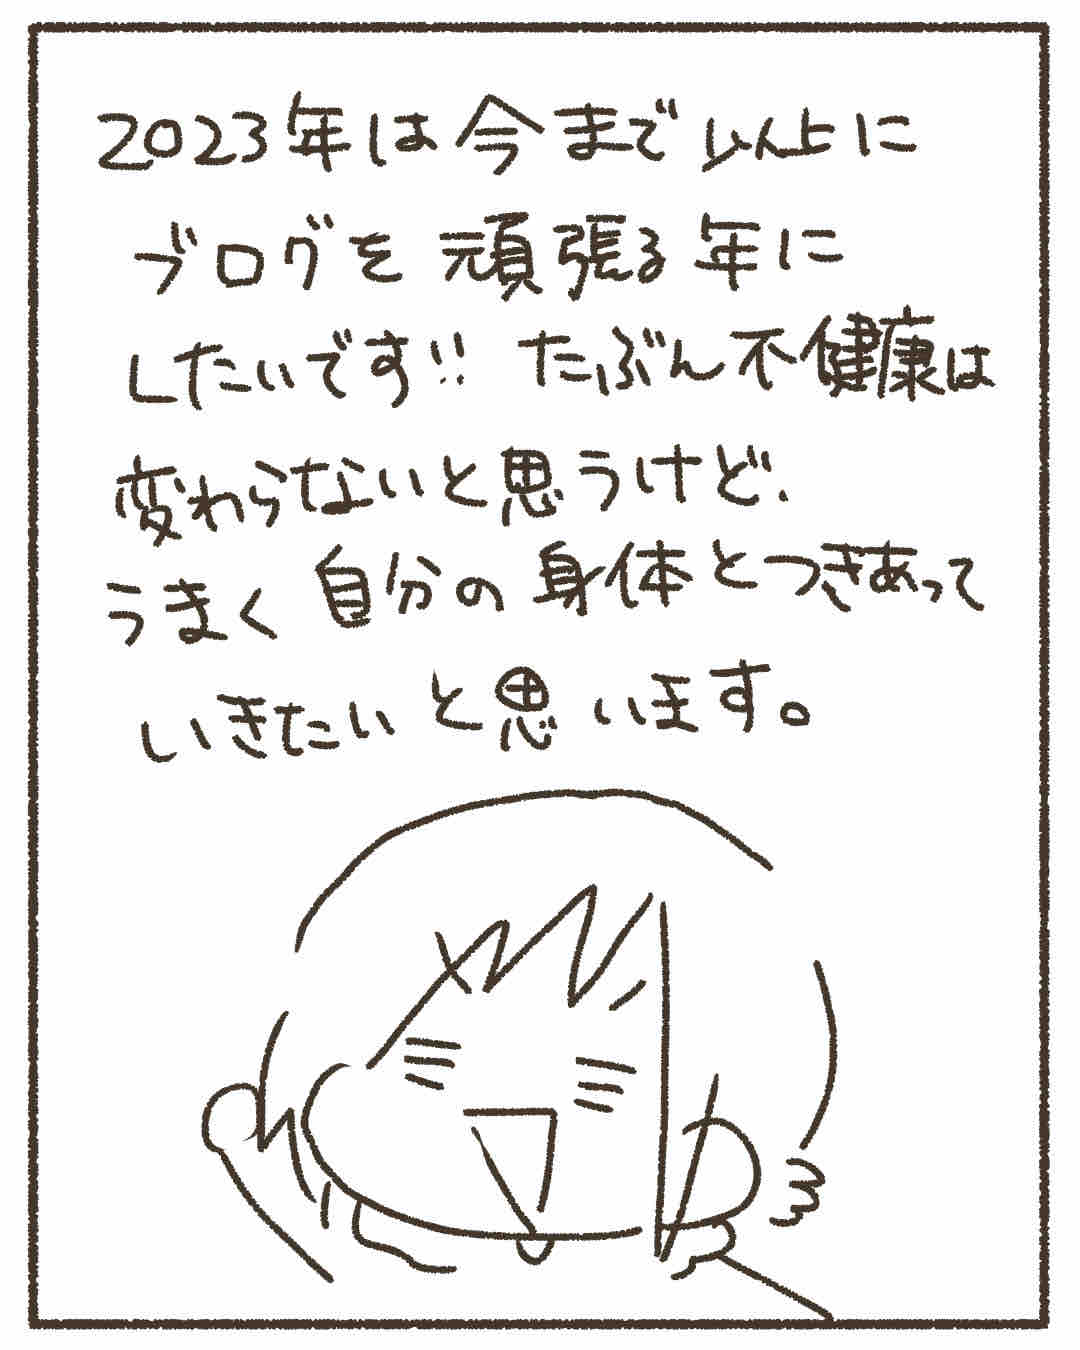 2023年は今まで以上に
ブログを頑張る年に
したいです!! たぶん不健康は
変わらないと思うけど、
うまく自分の身体とつきあって
いきたいと思います。